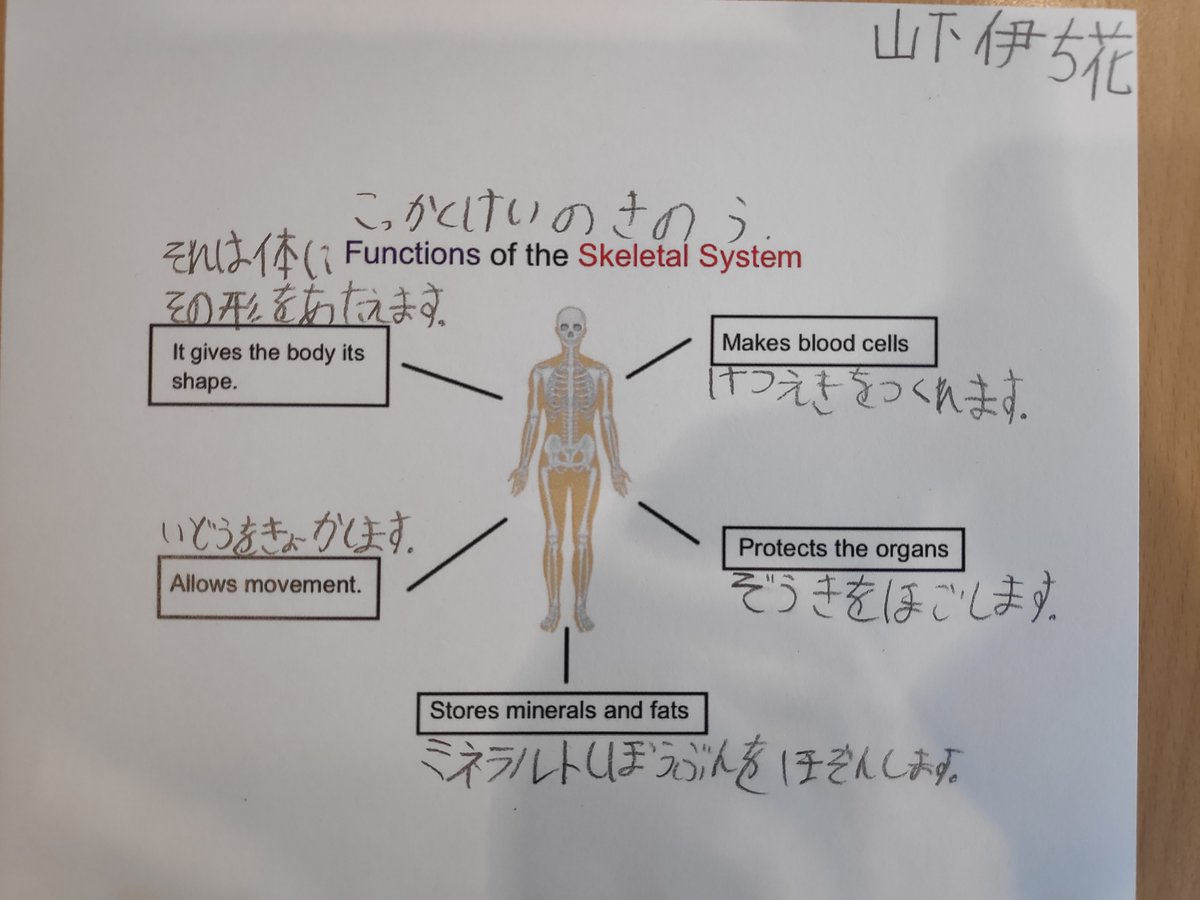 山下伊ち花
こっかくけいのきのう.
それは体に
その形をあたえます.
Functions of the Skeletal System
It gives the body its
shape.
Makes blood cells
けつえきをつくれます.
いどうをきょかします.
Allows movement.
Protects the organs
ぞうきをほごします.
Stores minerals and fats
ミネラルトしぼうぶんをほぞんします.